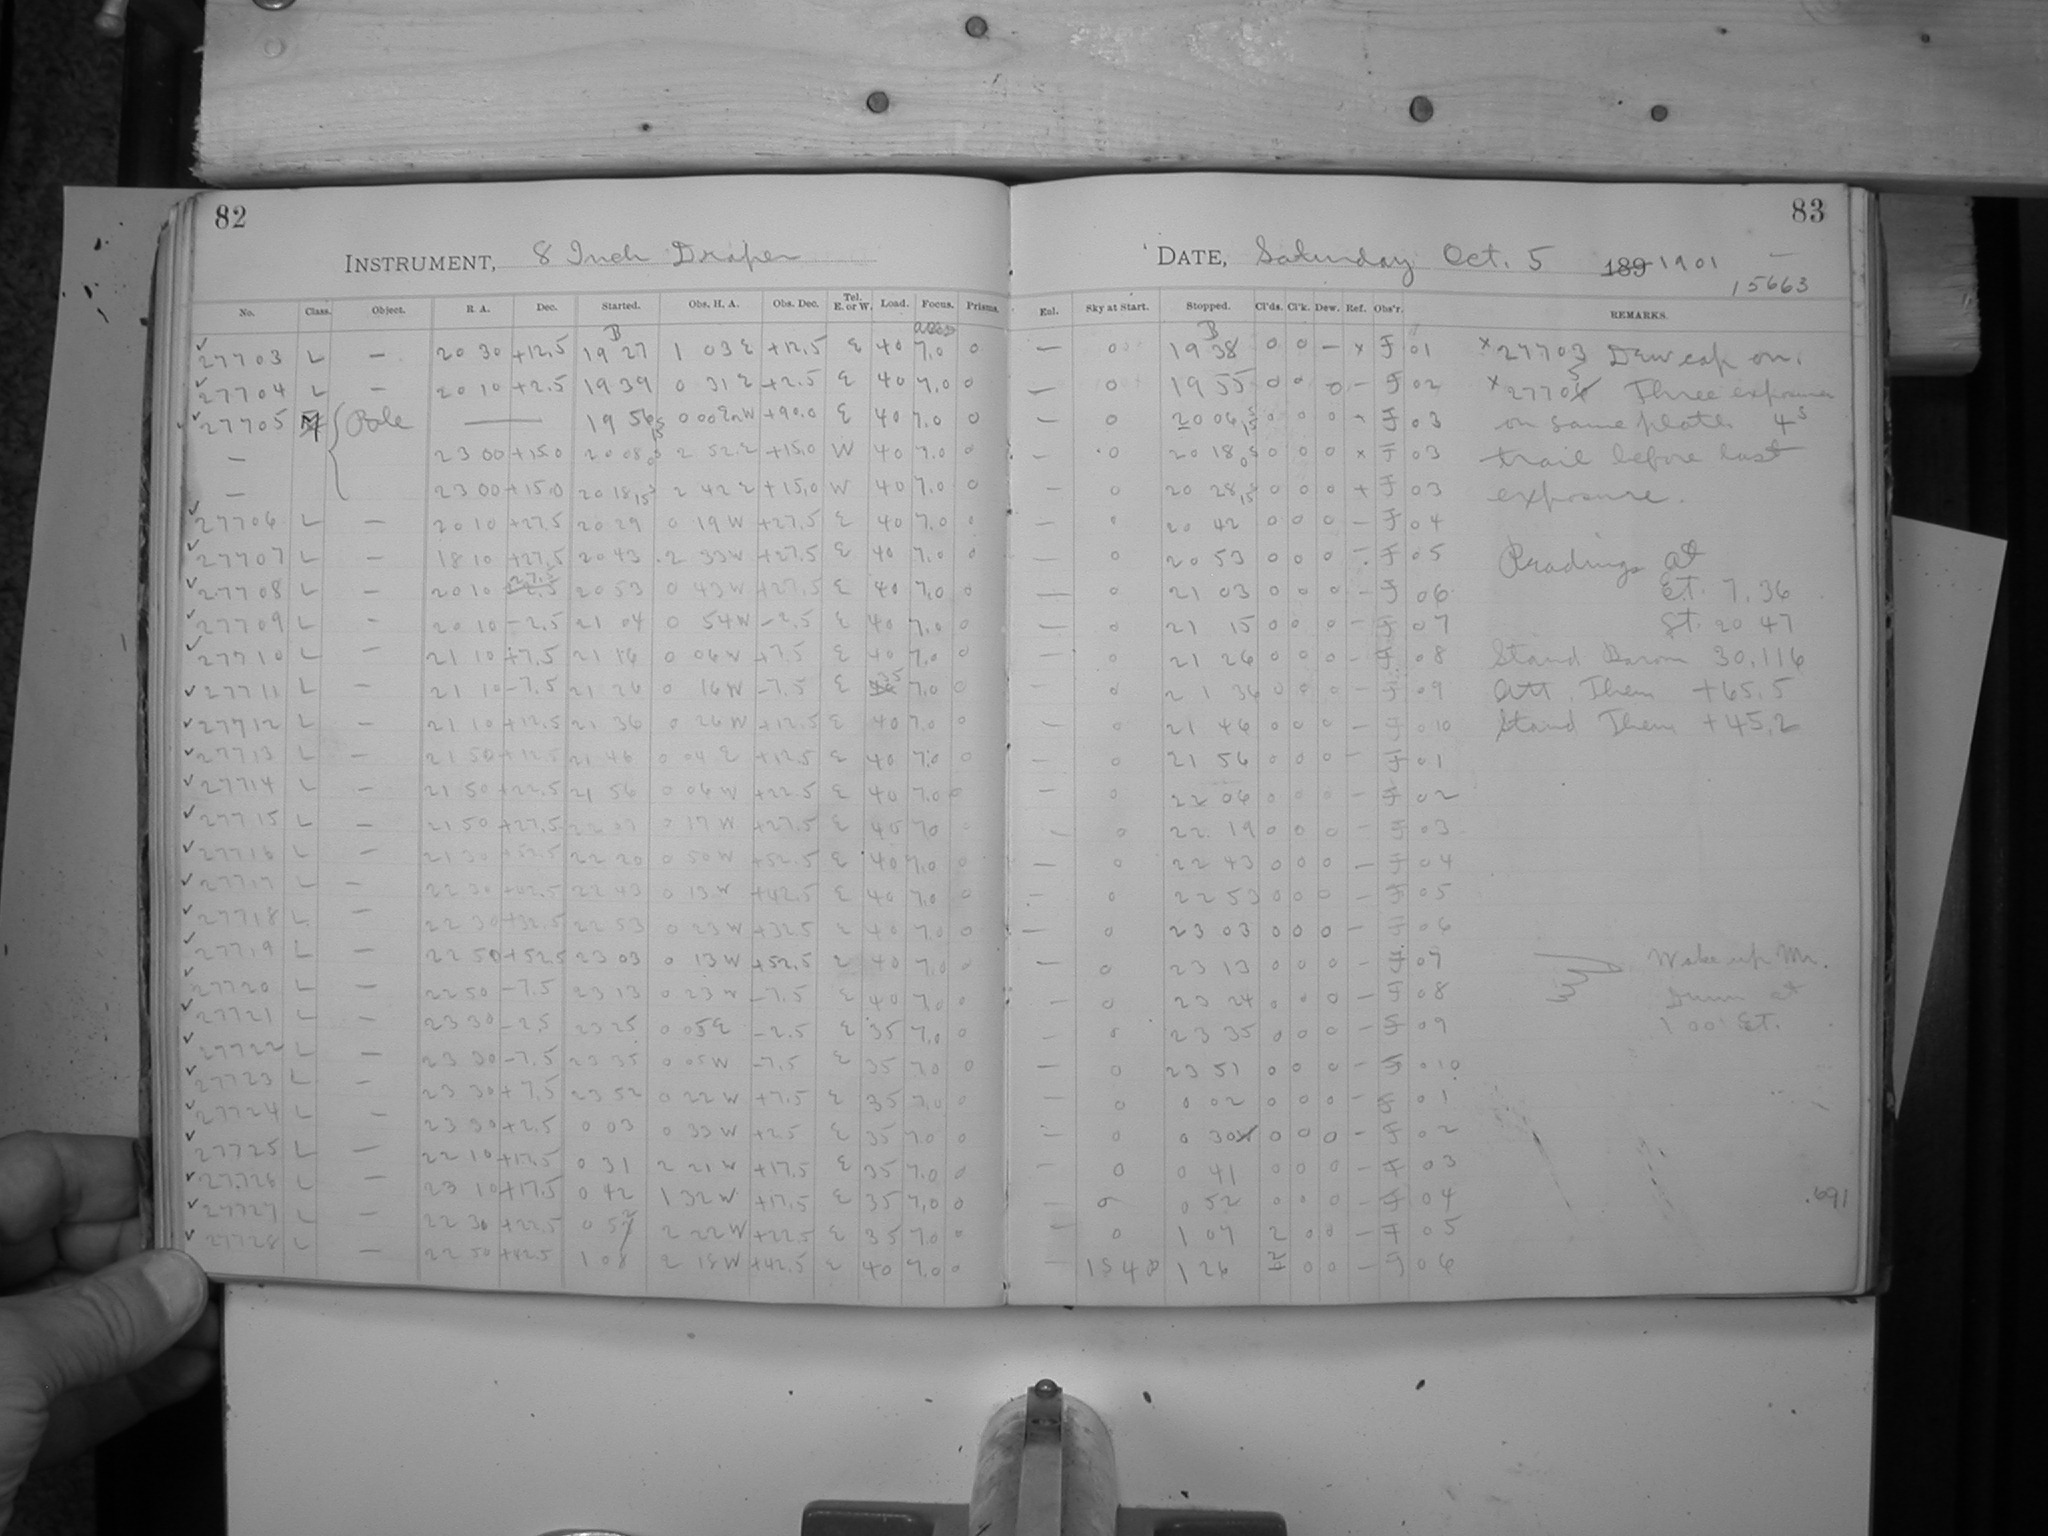 82
INSTRUMENT, 8 Inch Draper
No. Class. Object. R. A. Dec. Started. Obs. H. A. Obs. Dec. Tel. E. or W. Load. Focus. Prisms.
27703 L — 20 30 +12.5 19 27 1 03 E +12.5 E 40 7.0 0
27704 L — 20 10 +2.5 19 39 0 31 E +2.5 E 40 7.0 0
27705 Pole — 19 56 +90.0 E 40 7.0 0
— 23 00 +15.0 20 08 2 52 E +15.0 W 40 7.0 0
— 23 00 +15.0 20 18 2 42 E +15.0 W 40 7.0 0
27706 L — 20 10 +27.5 20 29 0 19 W +27.5 E 40 7.0 0
27707 L — 18 10 +27.5 20 43 2 33 W +27.5 E 40 7.0 0
27708 L — 20 10 20 53 0 43 W +27.5 E 40 7.0 0
27709 L — 20 10 -2.5 21 04 0 54 W -2.5 E 40 7.0 0
27710 L — 21 10 +7.5 21 16 0 06 W +7.5 E 40 7.0 0
27711 L — 21 10 -7.5 21 26 0 16 W -7.5 E 35 7.0 0
27712 L — 21 10 +12.5 21 36 0 26 W +12.5 E 40 7.0 0
27713 L — 21 50 +12.5 21 46 0 04 E +12.5 E 40 7.0 0
27714 L — 21 50 +22.5 21 56 0 06 W +22.5 E 40 7.0 0
27715 L — 21 50 +27.5 22 07 0 17 W +27.5 E 40 7.0
27716 L — 21 30 +52.5 22 20 0 50 W +52.5 E 40 7.0 0
27717 L — 22 30 +42.5 22 43 0 13 W +42.5 E 40 7.0 0
27718 L — 22 30 +32.5 22 53 0 23 W +32.5 E 40 7.0 0
27719 L — 22 50 +52.5 23 03 0 13 W +52.5 E 40 7.0 0
27720 L — 22 50 -7.5 23 13 0 23 W -7.5 E 40 7.0 0
27721 L — 23 30 -2.5 23 25 0 05 E -2.5 E 35 7.0 0
27722 L — 23 30 -7.5 23 35 0 05 W -7.5 E 35 7.0 0
27723 L — 23 30 +7.5 23 52 0 22 W +7.5 E 35 7.0 0
27724 L — 23 30 +2.5 0 03 0 33 W +2.5 E 35 7.0 0
27725 L — 22 10 +17.5 0 31 2 21 W +17.5 E 35 7.0 0
27726 L — 23 10 +17.5 0 42 1 32 W +17.5 E 35 7.0 0
27727 L — 22 30 +22.5 0 52 2 22 W +22.5 E 35 7.0 0
27728 L — 22 50 +42.5 1 08 2 18 W +42.5 E 40 7.0 0
83
DATE, Saturday Oct. 5 189 1901
15663
Enl. Sky at Start. Stopped. Cl'ds. Cl'k. Dew. Ref. Obs'r. REMARKS.
— 0 19 38 0 0 — x F 01 x 27703 Dew cap on.
— 0 19 55 0 0 0 – F 02 x 27705 Three exposures
— 0 20 06 0 0 0 F 03 on same plate. 4s
— 0 20 18 0 0 0 x F 03 trail before last
— 0 20 28 0 0 0 F 03 exposure.
— 0 20 42 0 0 0 – F 04
— 0 20 53 0 0 0 – F 05 Readings at
— 0 21 03 0 0 0 – F 06 E.T. 7.36
— 0 21 15 0 0 0 – F 07 S.T. 20 47
— 0 21 26 0 0 0 – F 08 Stand Barom 30.116
— 0 21 36 0 0 0 – F 09 Att. Them +65.5
— 0 21 46 0 0 0 – F 010 Stand Them +45.2
— 0 21 56 0 0 0 – F 01
— 0 22 06 0 0 0 – F 02
— 0 22 19 0 0 0 – F 03
— 0 22 43 0 0 0 – F 04
— 0 22 53 0 0 0 – F 05
— 0 23 03 0 0 0 – F 06
— 0 23 13 0 0 0 – F 07 Wake up Mr.
— 0 23 24 0 0 0 – F 08 Dunn at
— 0 23 35 0 0 0 – F 09 1 00 E.T.
— 0 23 51 0 0 0 – F 010
— 0 0 02 0 0 0 – F 01
— 0 0 30 0 0 0 – F 02
— 0 0 41 0 0 0 – F 03
— 0 0 52 0 0 0 – F 04 .691
— 0 1 07 2 0 0 – F 05
— 1 26 0 0 – F 06